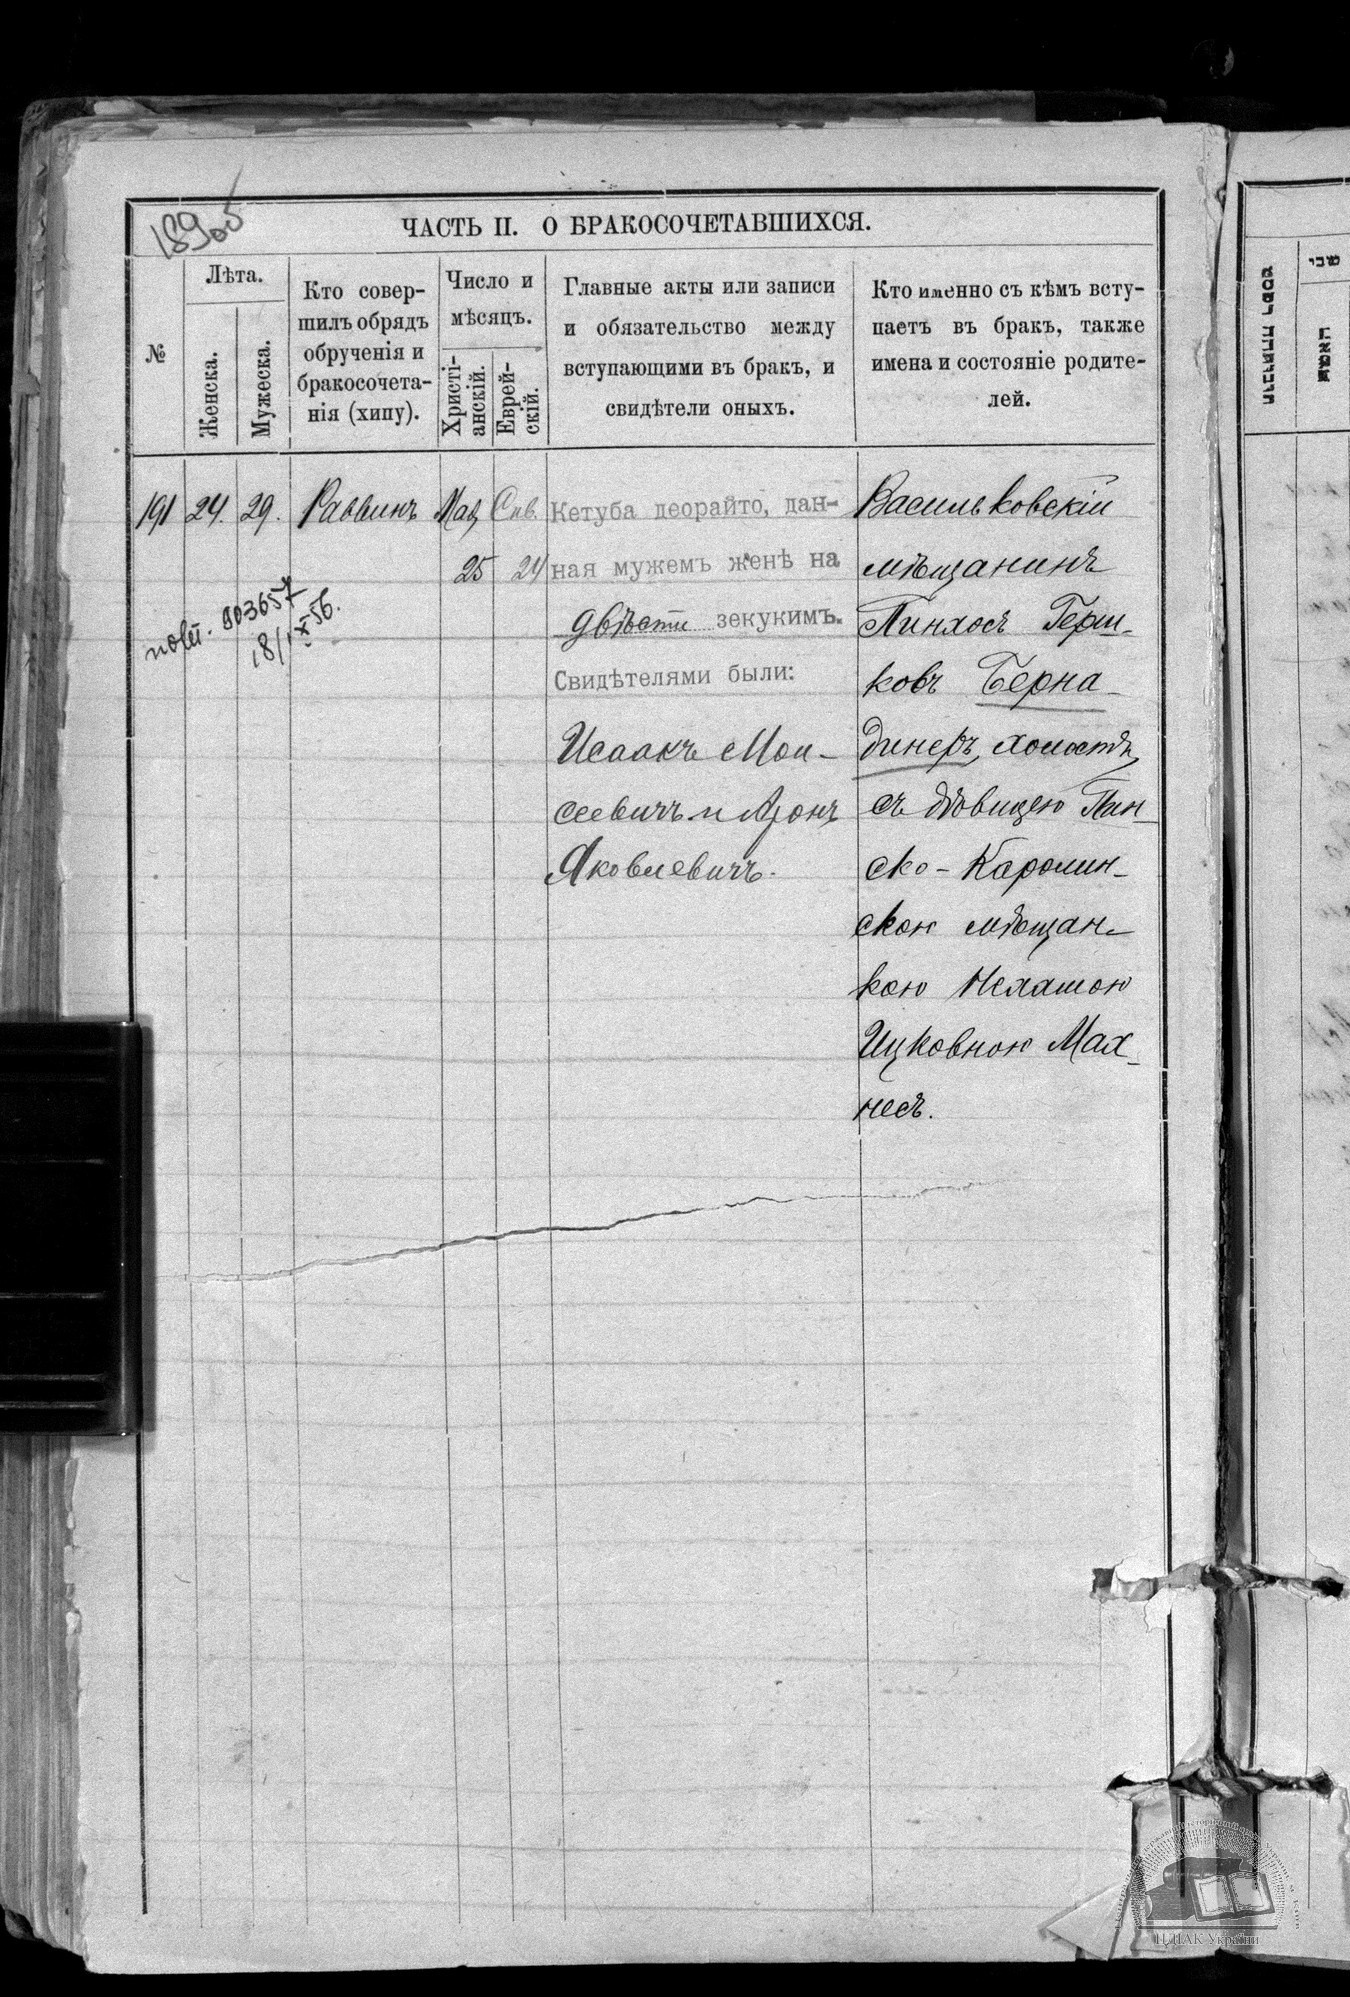 189об
ЧАСТЬ II. О БРАКОСОЧЕТАВШИХСЯ.
№
Лѣта.
Женска.
Мужеска.
Кто совер-
шилъ обрядъ
обрученія и
бракосочета-
нія (хипу).
Число и
мѣсяцъ.
Христі-
анскій.
Еврей-
скій.
Главные акты или записи
и обязательство между
вступающими въ бракъ, и
свидѣтели оныхъ.
Кто именно съ кѣмъ всту-
паетъ въ бракъ, также
имена и состояніе родите-
лей.
191 24. 29. Раввинъ
Май
25
Сив.
24
Кетуба деорайто, дан-
ная мужемъ женѣ на
двѣсти зекукимъ.
Свидѣтелями были:
Исаакъ Мои-
сеевичъ и Аронъ
Яковлевичъ.
Васильковскій
мѣщанинъ
Пинхосъ Герш-
ковъ Берна-
динеръ, холостъ,
съ дѣвицею Пин-
ско-Каролин-
скою мѣщан-
кою Нехамою
Ицковною Мах-
несъ.
повт. 803657
18/IX 56.
שבי
ЦДІАК України